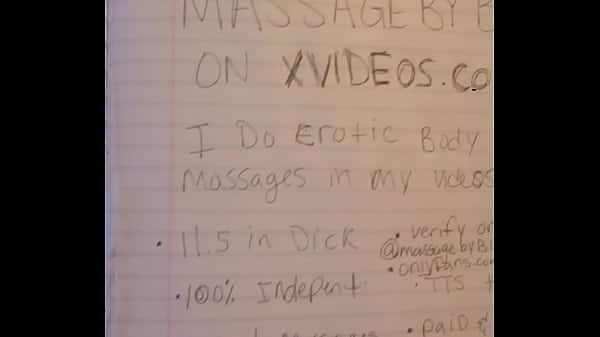 MASSAGE BY B
ON XVIDEOS.CO
I Do Erotic Body
Massages in my videos
• 11.5 in Dick
• verify on
@massagebyBl
• onlyfans.com
• 100% Indepent
• TTS
• paid &